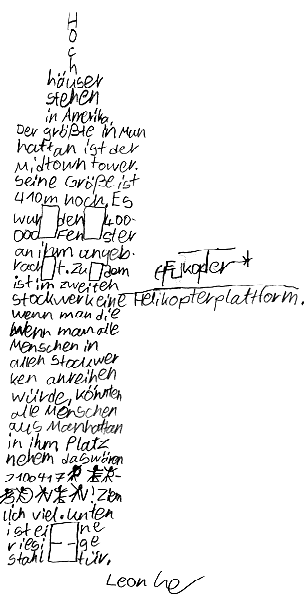 H
o
c
h
häuser
stehen
in Amerika.
Der größte in Man
hattan ist der
Midtown tower.
Seine Größe ist
410m hoch. Es
wurden 400-
000 Fenster
an ihm angeb-
racht. Zudem
ist im zweiten
Stockwerk eine Helikopterplattform.
wenn man die
wenn man alle
Menschen in
allen Stockwer
ken anreihen
würde, könnten
alle Menschen
aus Manhattan
in ihm Platz
nehem das wären
Ziem
lich viel. Unten
ist eine
riesige
stahltür.
Leon